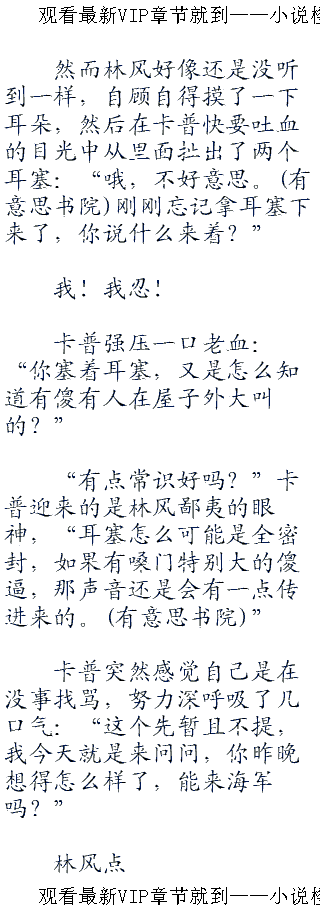 观看最新VIP章节就到——小说
然而林风好像还是没听
到一样，自顾自得摸了一下
耳朵，然后在卡普快要吐血
的目光中从里面扯出了两个
耳塞：“哦，不好意思。(有
意思书院)刚刚忘记拿耳塞下
来了，你说什么来着？”
我！我忍！
卡普强压一口老血：
“你塞着耳塞，又是怎么知
道有傻有人在屋子外大叫
的？”
“有点常识好吗？”卡
普迎来的是林风鄙夷的眼
神，“耳塞怎么可能是全密
封，如果有嗓门特别大的傻
逼，那声音还是会有一点传
进来的。(有意思书院)”
卡普突然感觉自己是在
没事找骂，努力深呼吸了几
口气：“这个先暂且不提，
我今天就是来问问，你昨晚
想得怎么样了，能来海军
吗？”
林风点
观看最新VIP章节就到——小说